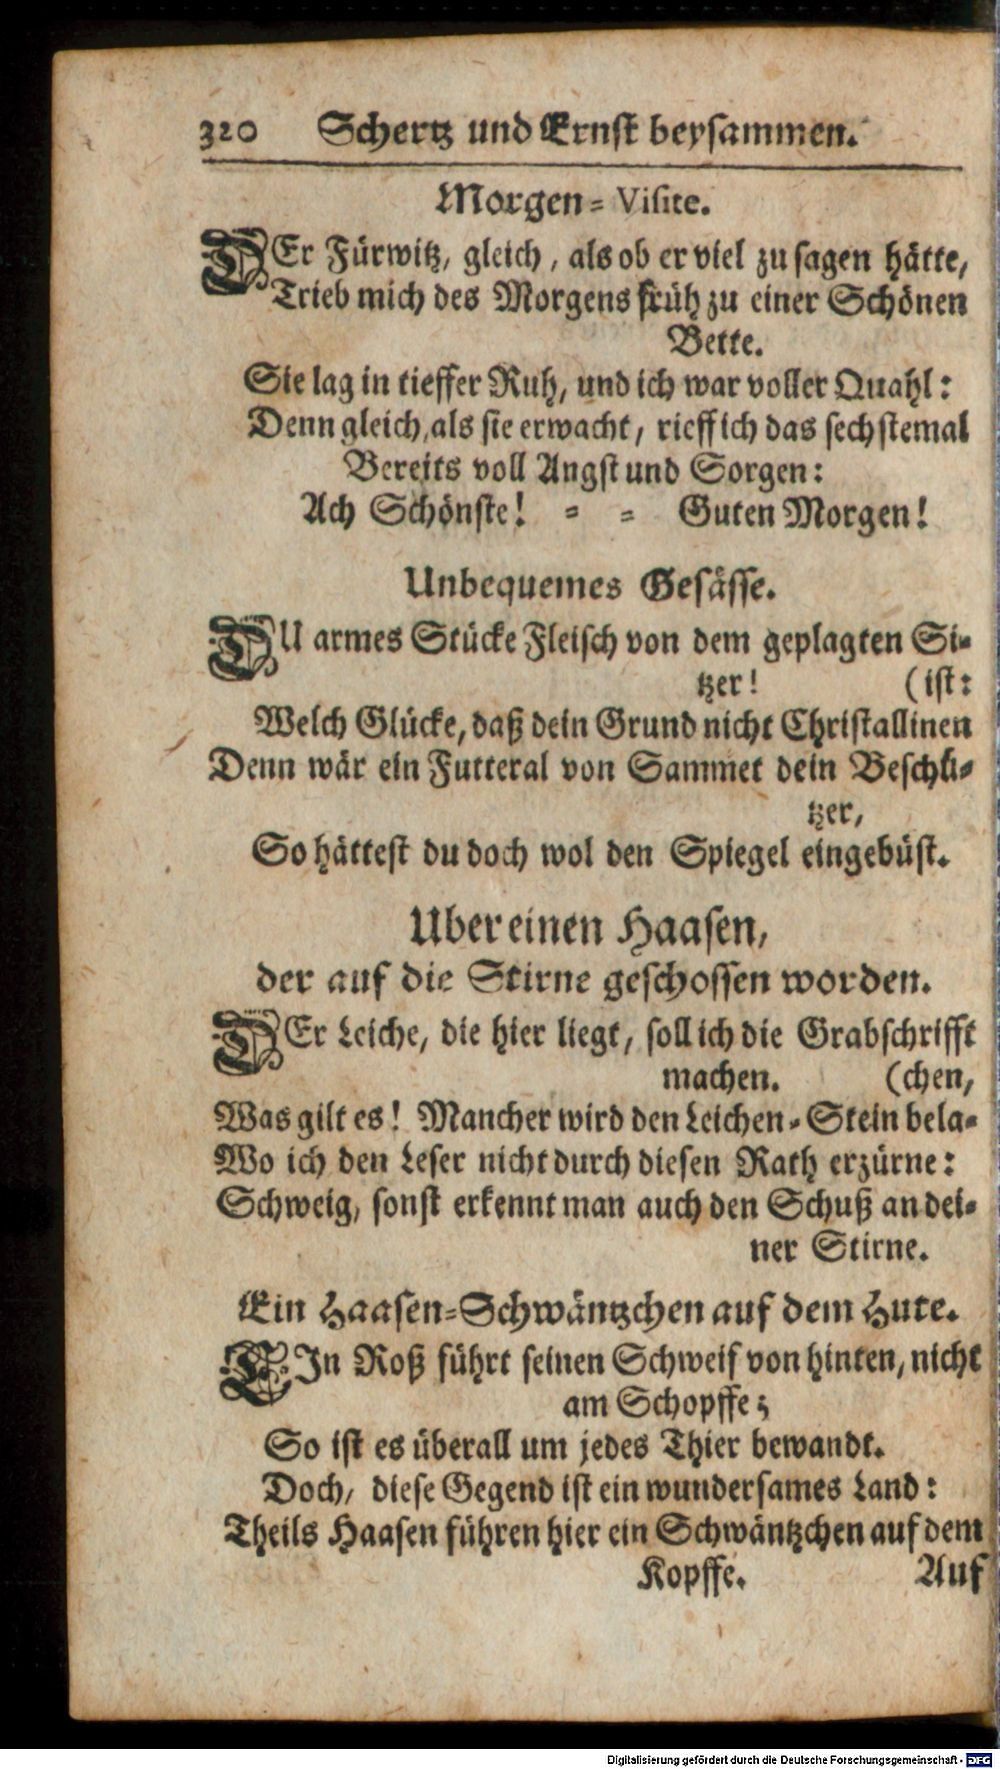 320 Schertz und Ernst beysammen.
Morgen-Visite.
DEr Fürwitz, gleich, als ob er viel zu sagen hätte,
Trieb mich des Morgens früh zu einer Schönen
Bette.
Sie lag in tieffer Ruh, und ich war voller Quahl:
Denn gleich, als sie erwacht, rieff ich das sechstemal
Bereits voll Angst und Sorgen:
Ach Schönste! - - Guten Morgen!
Unbequemes Gesässe.
DU armes Stücke Fleisch von dem geplagten Si-
tzer! (ist:
Welch Glücke, daß dein Grund nicht Christallinen
Denn wär ein Futteral von Sammet dein Beschü-
tzer,
So hättest du doch wol den Spiegel eingebüst.
Uber einen Haasen,
der auf die Stirne geschossen worden.
DEr Leiche, die hier liegt, soll ich die Grabschrifft
machen. (chen,
Was gilt es! Mancher wird den Leichen-Stein bela-
Wo ich den Leser nicht durch diesen Rath erzürne:
Schweig, sonst erkennt man auch den Schuß an dei-
ner Stirne.
Ein Haasen-Schwäntzchen auf dem Hute.
EIn Roß führt seinen Schweif von hinten, nicht
am Schopffe;
So ist es überall um jedes Thier bewandt.
Doch, diese Gegend ist ein wundersames Land:
Theils Haasen führen hier ein Schwäntzchen auf dem
Kopffe. Auf
Digitalisierung gefördert durch die Deutsche Forschungsgemeinschaft - DFG